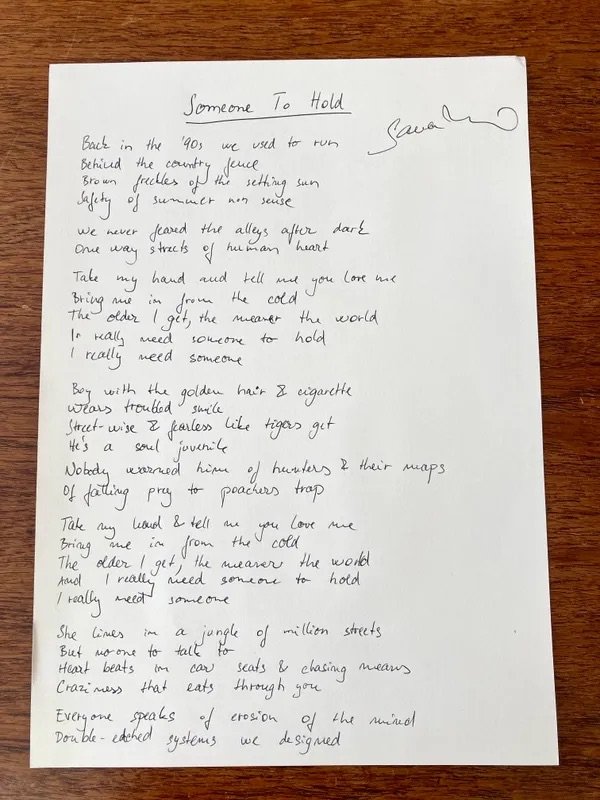 Someone To Hold
Back in the '90s we used to run
Behind the country fence
Brown freckles of the setting sun
Safety of summer non sense
We never feared the alleys after dark
One way streets of human heart
Take my hand and tell me you love me
Bring me in from the cold
The older I get, the meaner the world
I really need someone to hold
I really need someone
Boy with the golden hair & cigarette
Wears troubled smile
Street-wise & fearless like tigers get
He's a soul juvenile
Nobody warned him of hunters & their maps
Of falling prey to poachers trap
Take my hand & tell me you love me
Bring me in from the cold
The older I get, the meaner the world
And I really need someone to hold
I really need someone
She lives in a jungle of million streets
But no one to talk to
Heart beats in car seats & chasing means
Craziness that eats through you
Everyone speaks of erosion of the mind
Double-edched systems we designed